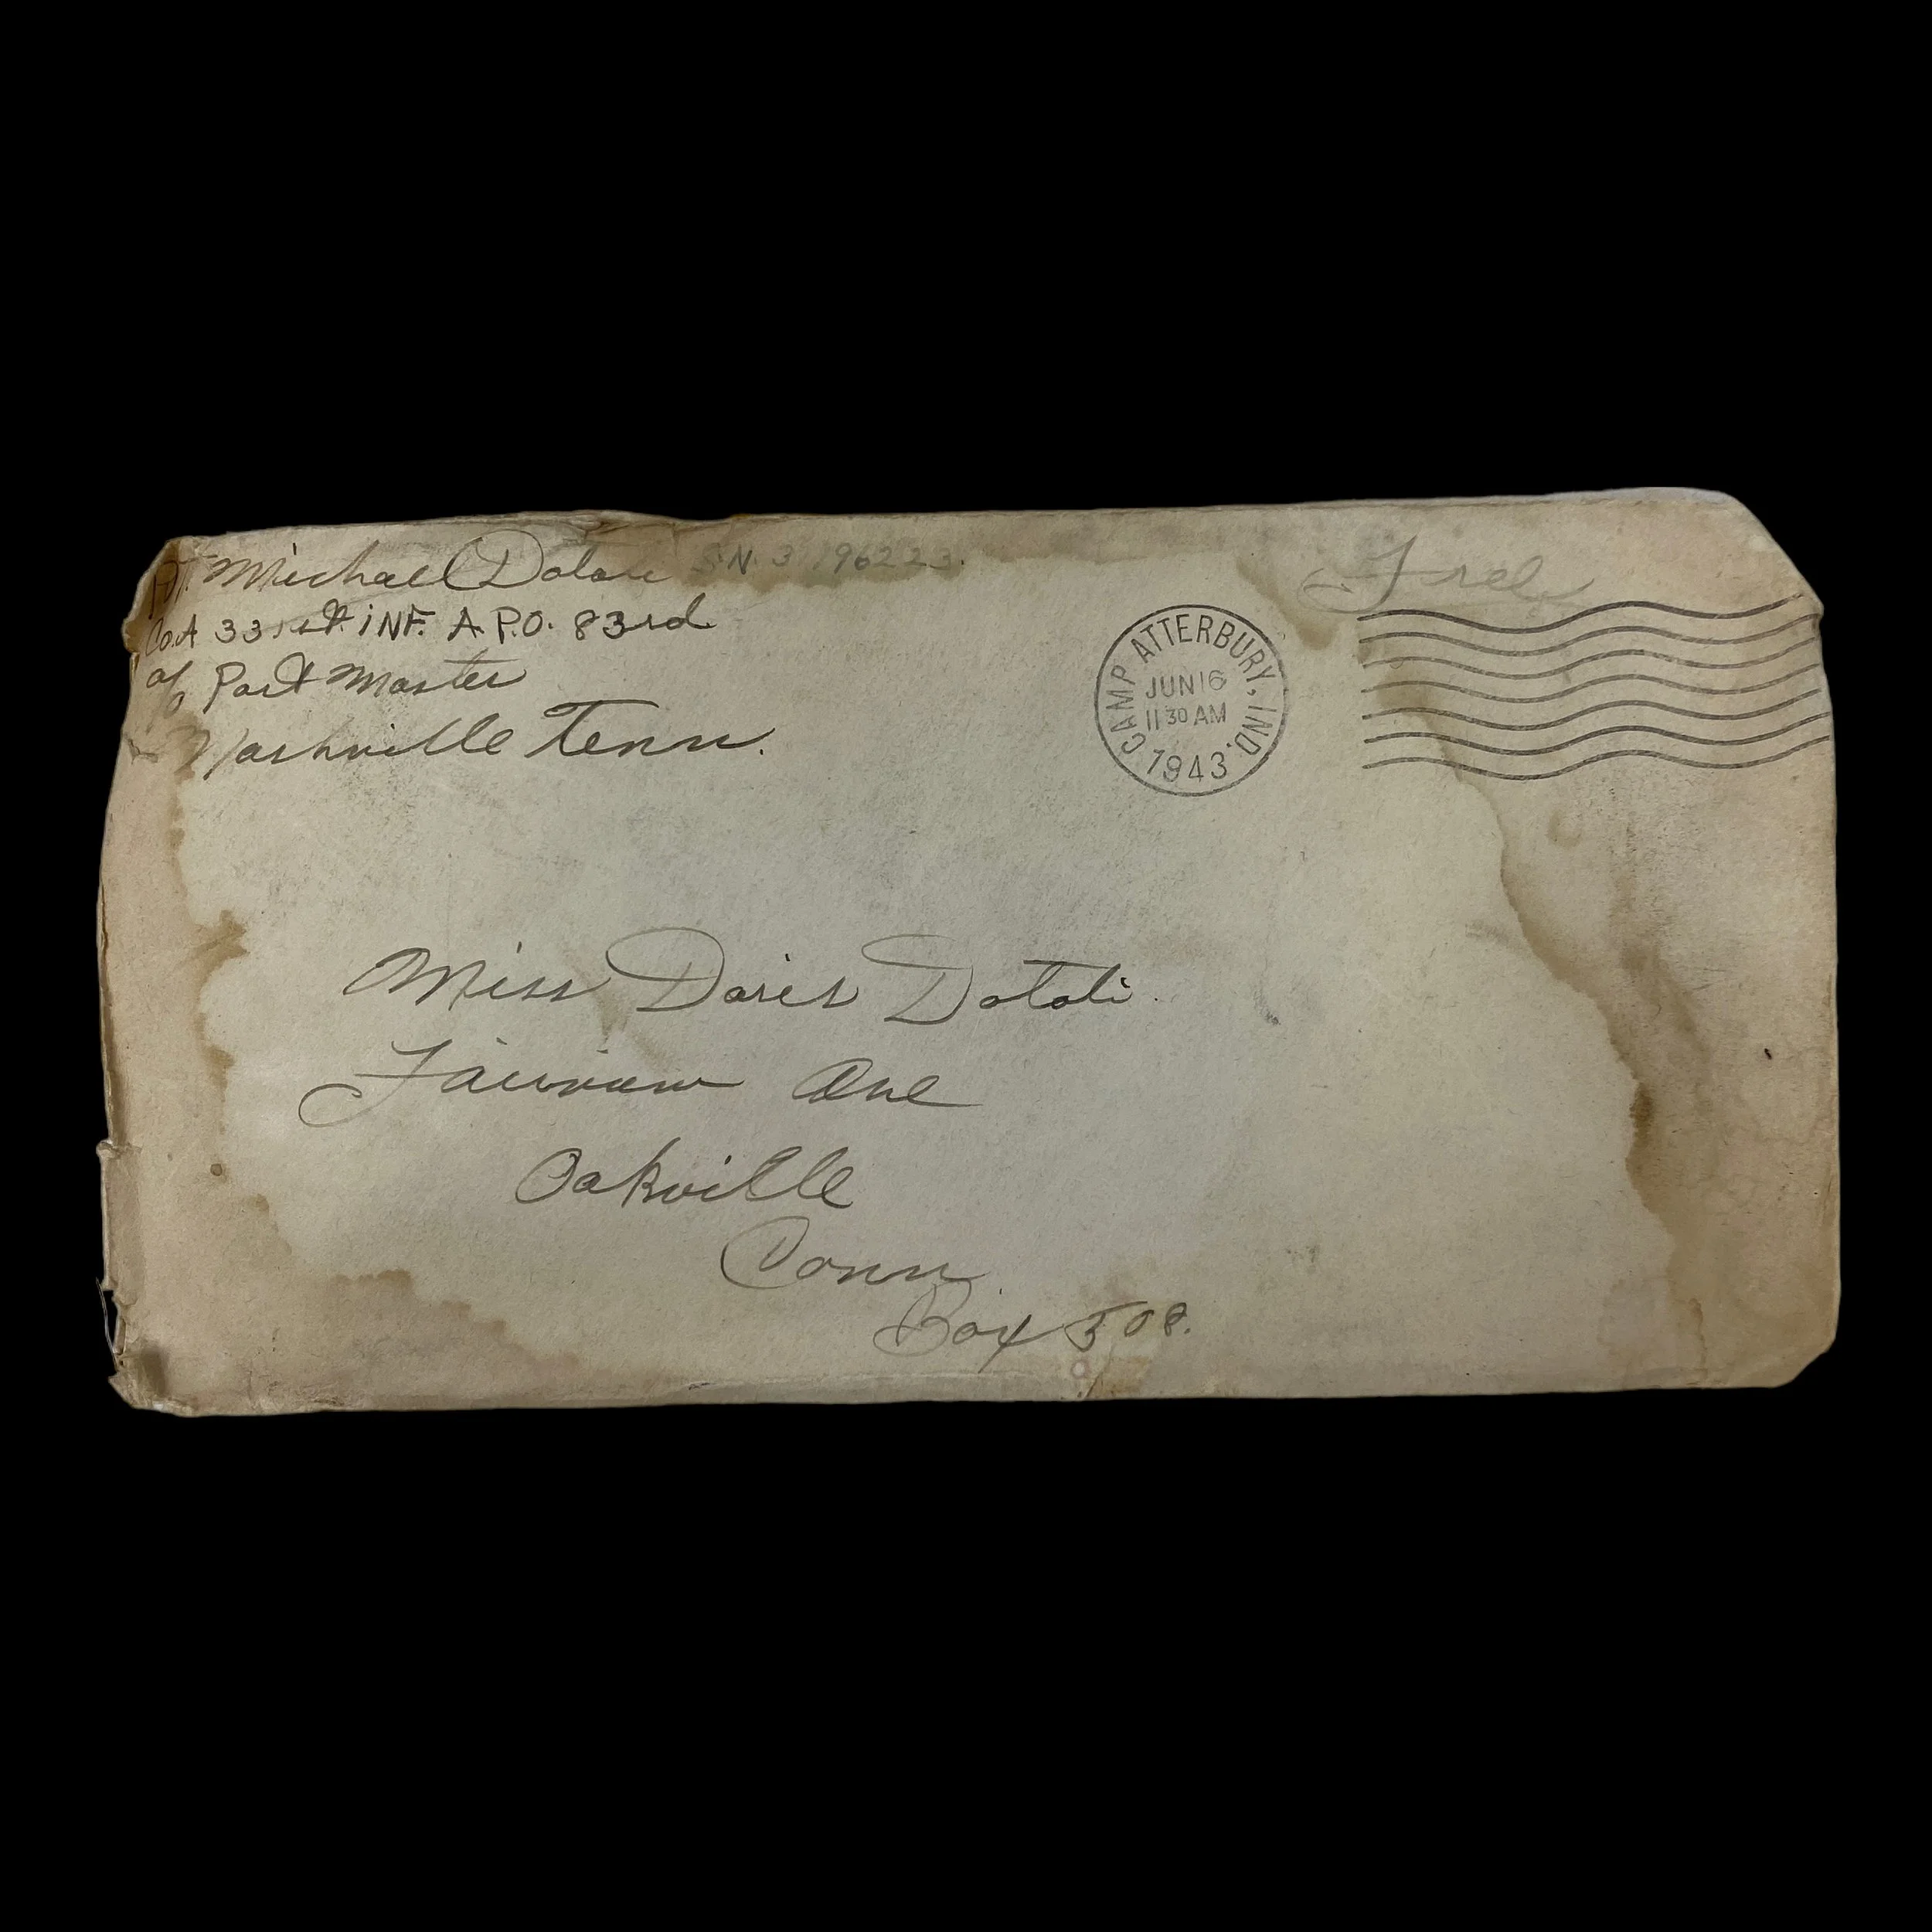 Pvt. Michael Dolan S.N. 31196223.
Co. A 331st. iNF. A.P.O. 83rd
c/o Post Master
Nashville Tenn.
Free
CAMP ATTERBURY, IND.
JUN 16
11 30 AM
1943
Miss Doris Dotoli.
Fairview Ave
Oakville
Conn
Box 508.